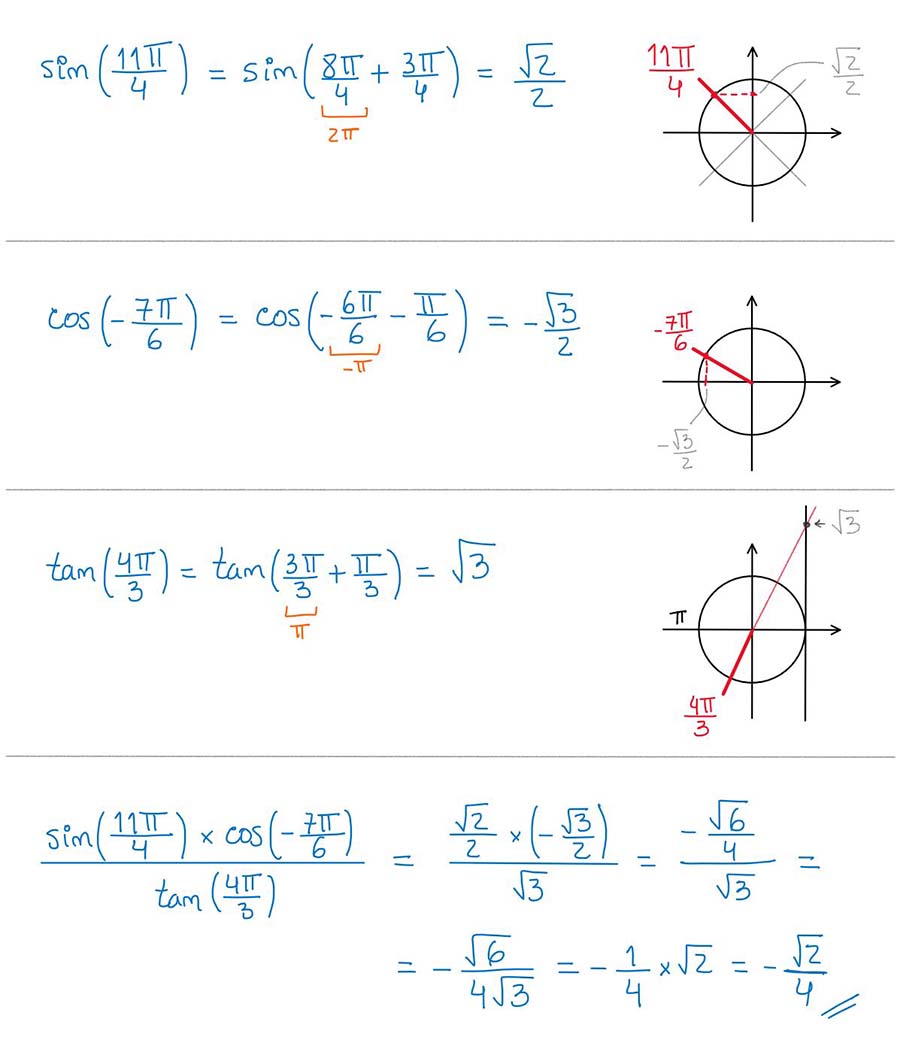 sin(11π/4) = sin(8π/4 + 3π/4) = √2/2
2π
11π/4
√2/2
cos(-7π/6) = cos(-6π/6 - π/6) = -√3/2
-π
-7π/6
-√3/2
tan(4π/3) = tan(3π/3 + π/3) = √3
π
← √3
π
4π/3
sin(11π/4) × cos(-7π/6) / tan(4π/3) = √2/2 × (-√3/2) / √3 = -√6/4 / √3 =
= -√6/4√3 = -1/4 × √2 = -√2/4 //